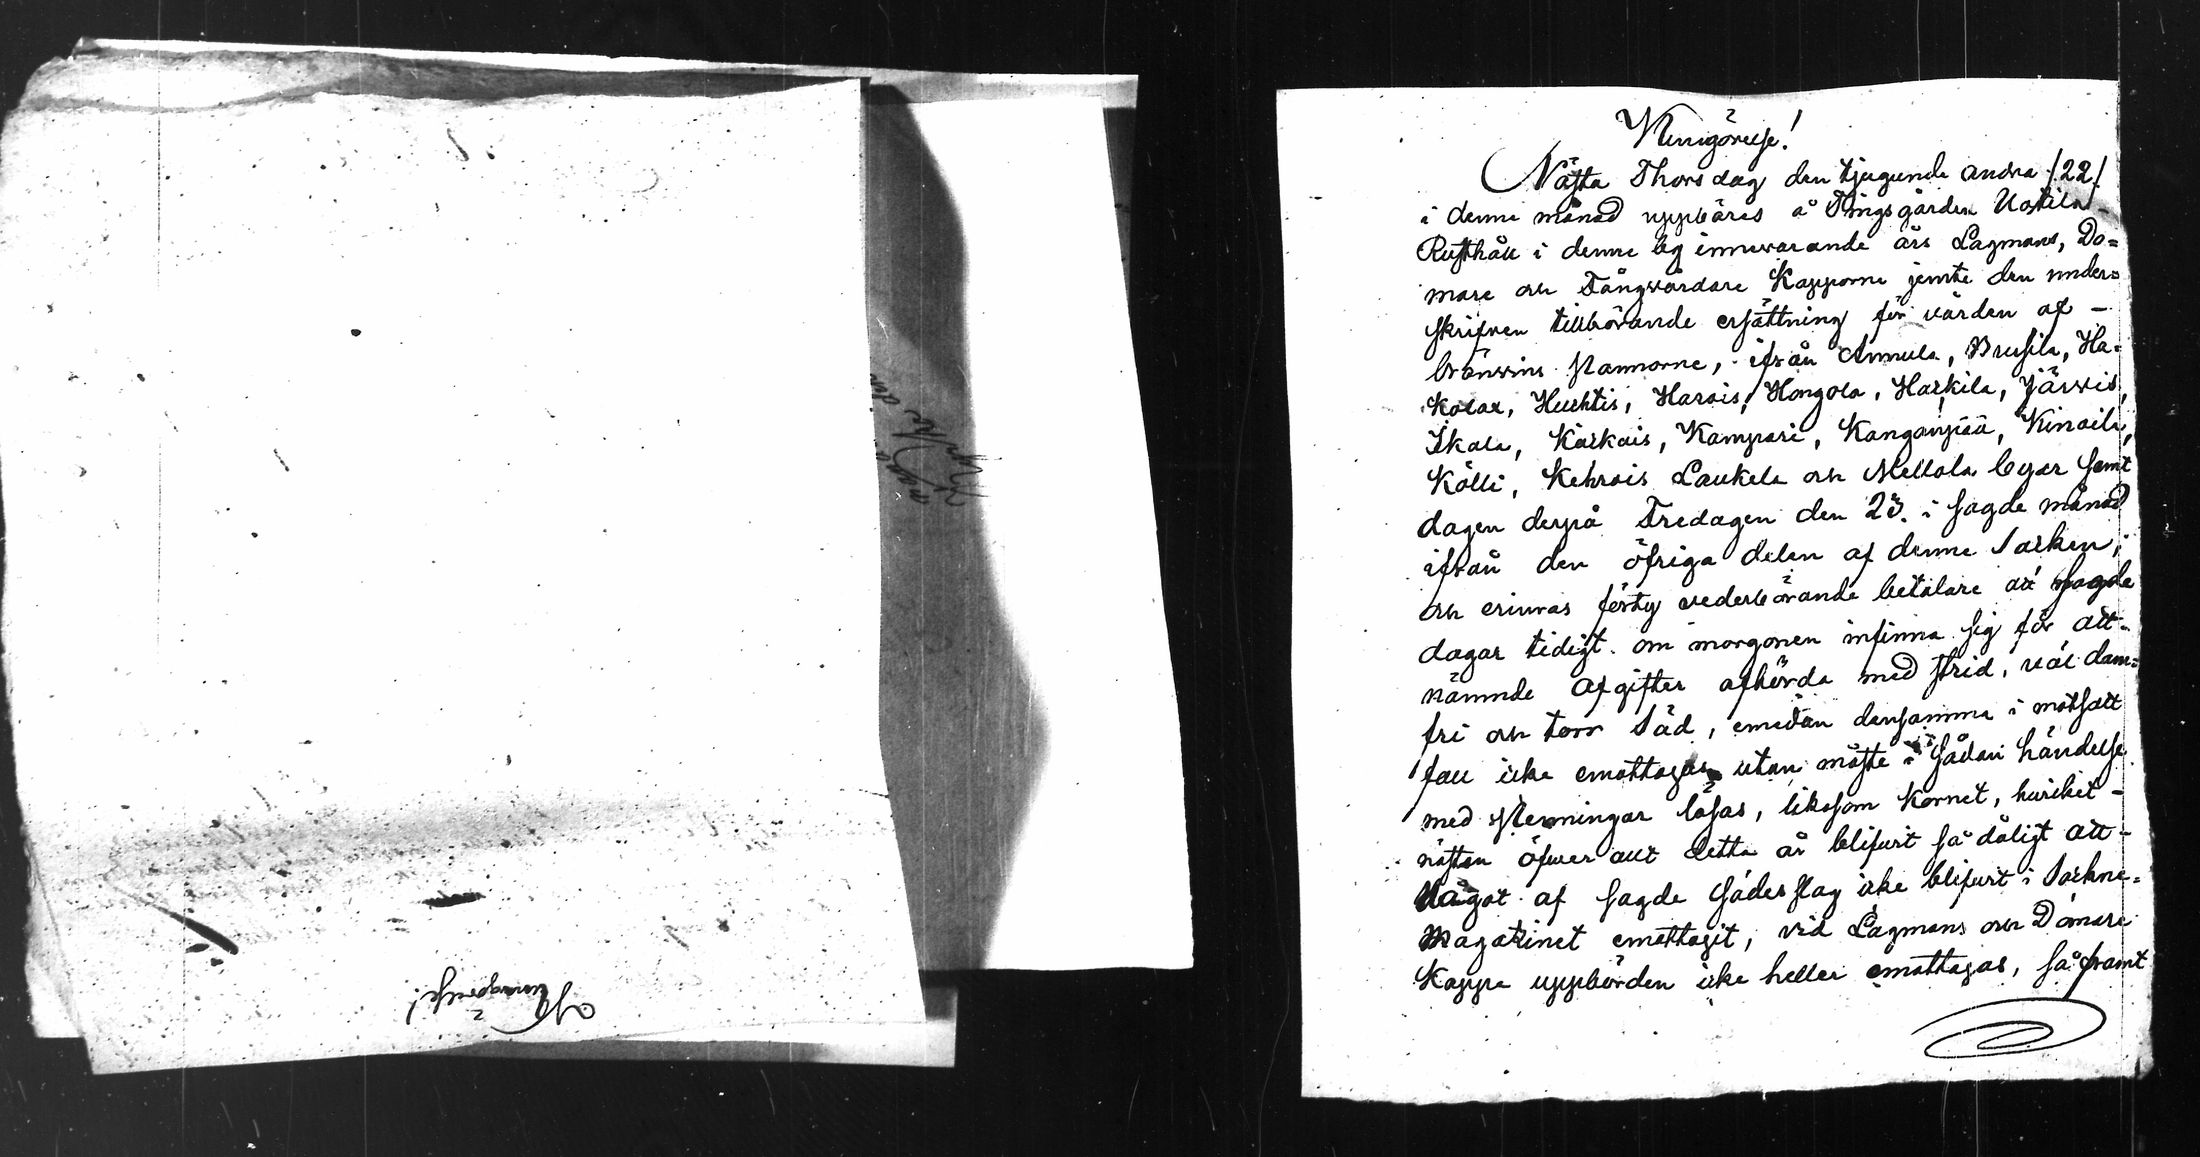 Kungörelse!
Nästa Thorsdag den tjugunde andra /22/
i denne månad uppbäres å Tingsgården Uotila
Rusthåll i denne by innevarande års Lagmans, Do=
mare och Fångvårdare Kapporne jemte den under=
skrifven tillhörande ersättning för vården af -
bränvins Pannorne, ifrån Anmula, Brusila, Ha=
kolax, Huhtis, Harois, Hongola, Harkila, Järvis,
Ikola, Karkais, Kampari, Kanganpää, Kinaila,
Kölli, Kehrois Laukela och Mellola byar samt
dagen derpå Fredagen den 23. i sagde månad
ifrån den öfriga delen af denne Socken,
och erinras förty vederbörande betalare at sagde
dagar tidigt om morgonen infinna sig för att
nämnde afgifter afbörda med strid, väl dam=
fri och torr Säd, emedan densamma i motsatt
fall icke emottages utan måste i sådan händelse
med Penningar lösas, liksom Kornet, hvilket -
nästan öfver allt detta år blifvit så dåligt att -
något af sagde Sädesslag icke blifvit i Sockne=
Magazinet emottagit, vid Lagmans och Domare
Kappe uppbörden icke heller emottages, så framt
Kungörelse!